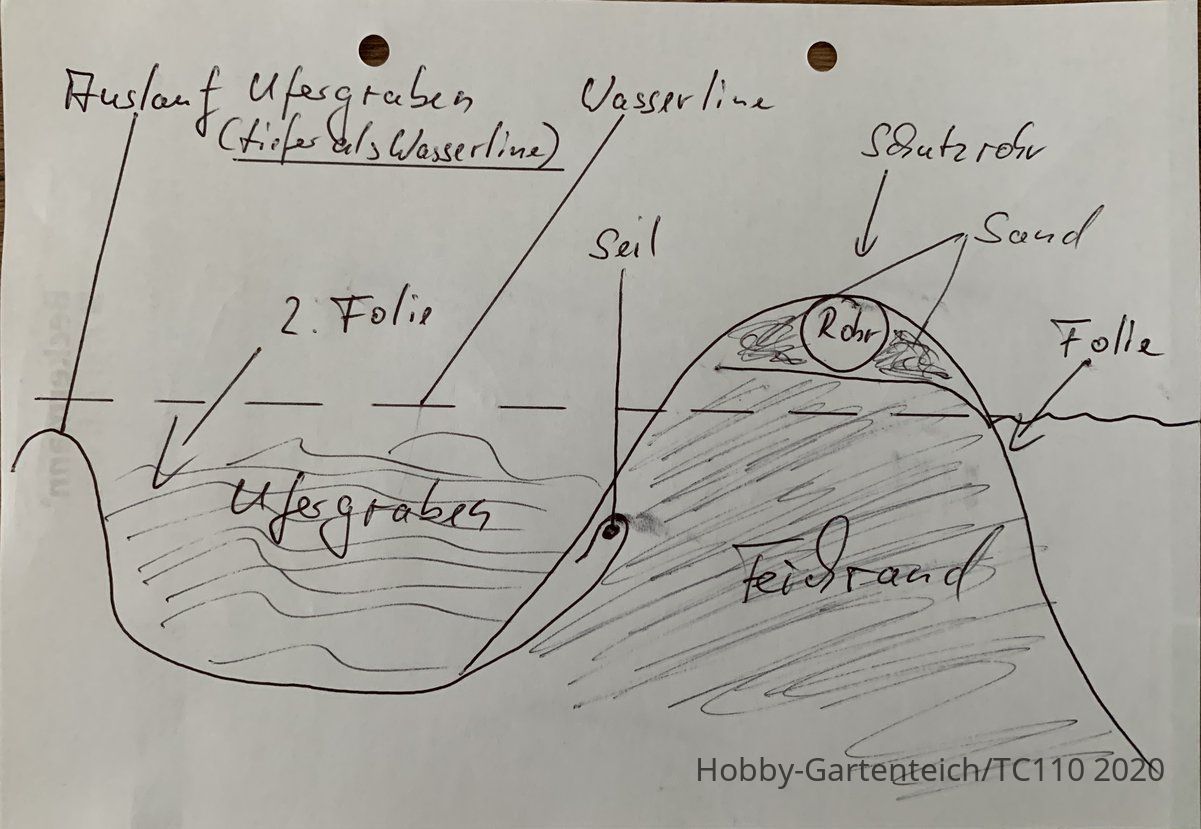 Auslauf Ufergraben
(tiefer als Wasserline)
Wasserline
Schutzrohr
Sand
Seil
2. Folie
Rohr
Folie
Ufergraben
Teichrand
Hobby-Gartenteich/TC110 2020